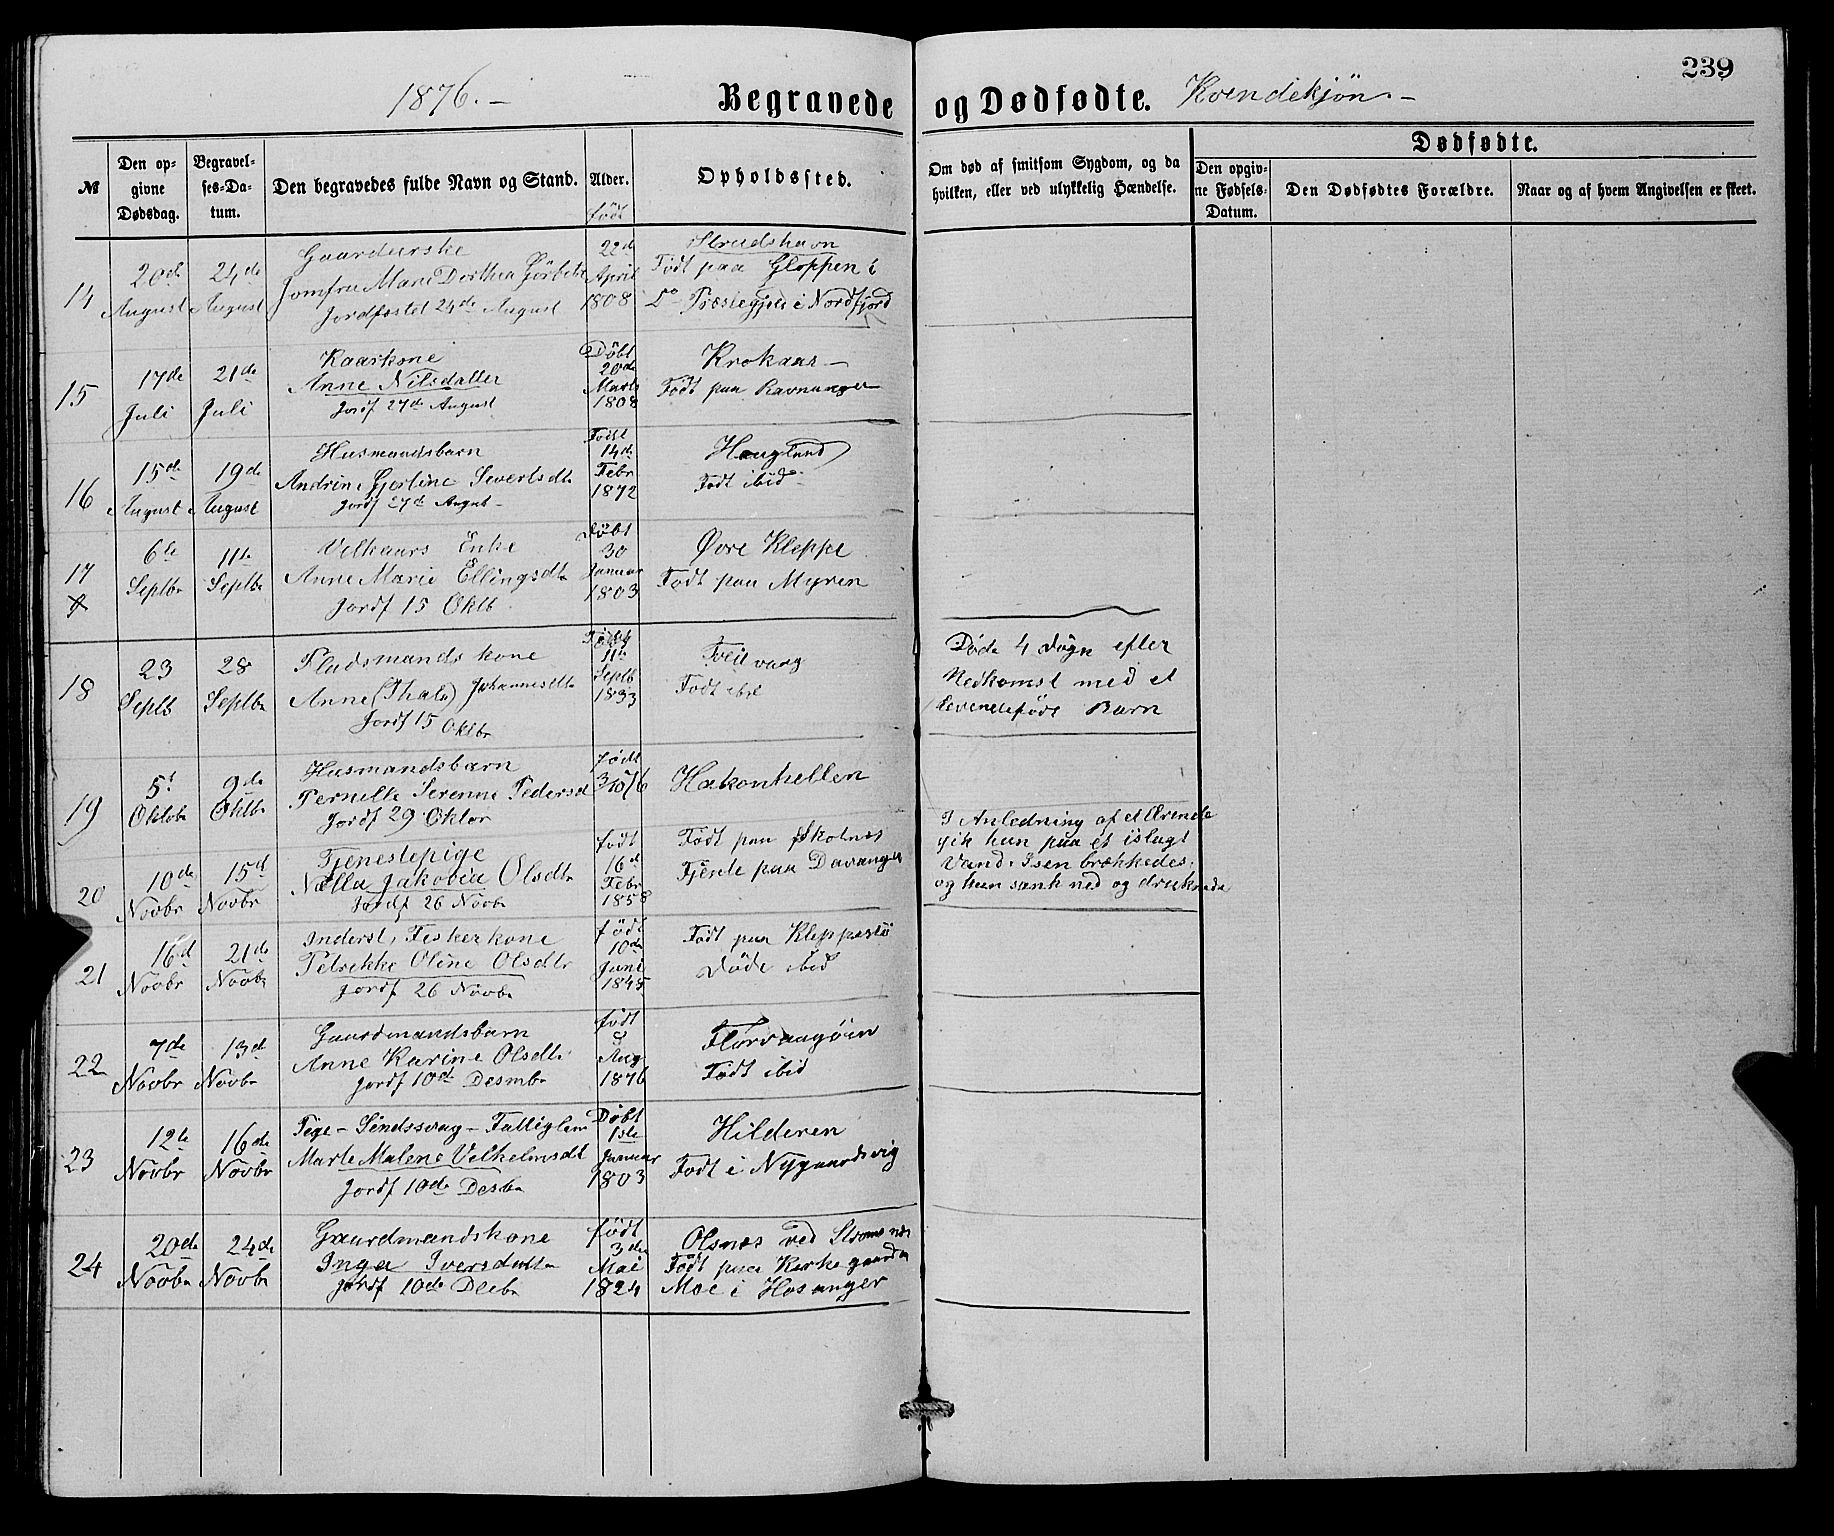 239
1876. – Begravede og Dødfødte. Kvendekjøn. –
№
Den opgivne Dødsdag.
Begravelses-Datum.
Den begravedes fulde Navn og Stand.
Alder.
født
Opholdssted.
Om død af smitsom Sygdom, og da hvilken, eller ved ulykkelig Hændelse.
Dødfødte.
Den opgivne Fødsels-Datum.
Den Dødfødtes Forældre.
Naar og af hvem Angivelsen er skeet.
14
20de August
24de August
Jomfru Marie Dorthea
Jordfæstet 24de August
22d April 1808
Strudshavn
Født paa Gloppen i
Do Præstegjæld i Nordfjord
15
17de Juli
21de Juli
Kaarkone
Anne Nilsdatter
Jordf 27de August
Døbt 20de Marts 1808
Krokaas –
Født paa Ravnanger
16
15de August
19de August
Husmandsbarn
Andrine Gjertine Sivertsdtr
Jordf 27de August –
Født 14de Febr 1872
Haugland
Født ibid –
17
6te Septbr
11te Septbr
Enke
Anne Marie Ellingsdtr
Jordf 15 Oktb
Døbt 30 Januar 1803
Øvre Kleppe
Født paa Myren
18
23 Septb
28 Septbr
Pladsmandskone
Anne (Thala) Johannesdtr
Jordf 15 Oktbr
Født 11te Septb 1833
Tveitvaag
Født ibd
Døde 4 Døgn efter
Nedkomst med et
levendefødt Barn
19
5t Oktobr
9de Oktbr
Husmandsbarn
Pernelle Serenne Pedersd
Jordf 29 Oktbr
født
Hakonhellen
20
10de Novbr
15de Novbr
Tjenestepige
Nella Jakobia Olsdtr
Jordf 26 Novbr
født 16d Febr 1858
Født paa Skolnes
Tjente paa Davanger
I Anledning af et Ærende
gik hun paa et islagt
Vand. Isen brækkedes,
og hun sank ned og druknede
21
16d Novbr
21de Novbr
Inderst, Fiskerkone
Petrikke Oline Olsdtr
Jordf 26 Novbr
født 10de Juni 1845
Født paa Kleppestø
Døde ibid
22
7de Novbr
13de Novbr
Gaardmandsbarn
Anne Karine Olsdtr
Jordf 10de Desmbr
født Aug 1876
Florvaagøen
Født ibid
23
12te Novbr
16de Novbr
Pige – Sindssvag – Fattiglem
Marte Malene Velhelmsdt
Jordf 10de Desbr
Døbt 1ste Januar 1803
Hilderen
Født i Nygaardsvig
24
20de Novbr
24de Novbr
Gaardmandskone
Inger Iversdatter
Jordf 10de Decbr
født 3de Mai 1824
Olsnes ved Strømsnes
Født paa Kirkegaarden
Moe i Hosanger